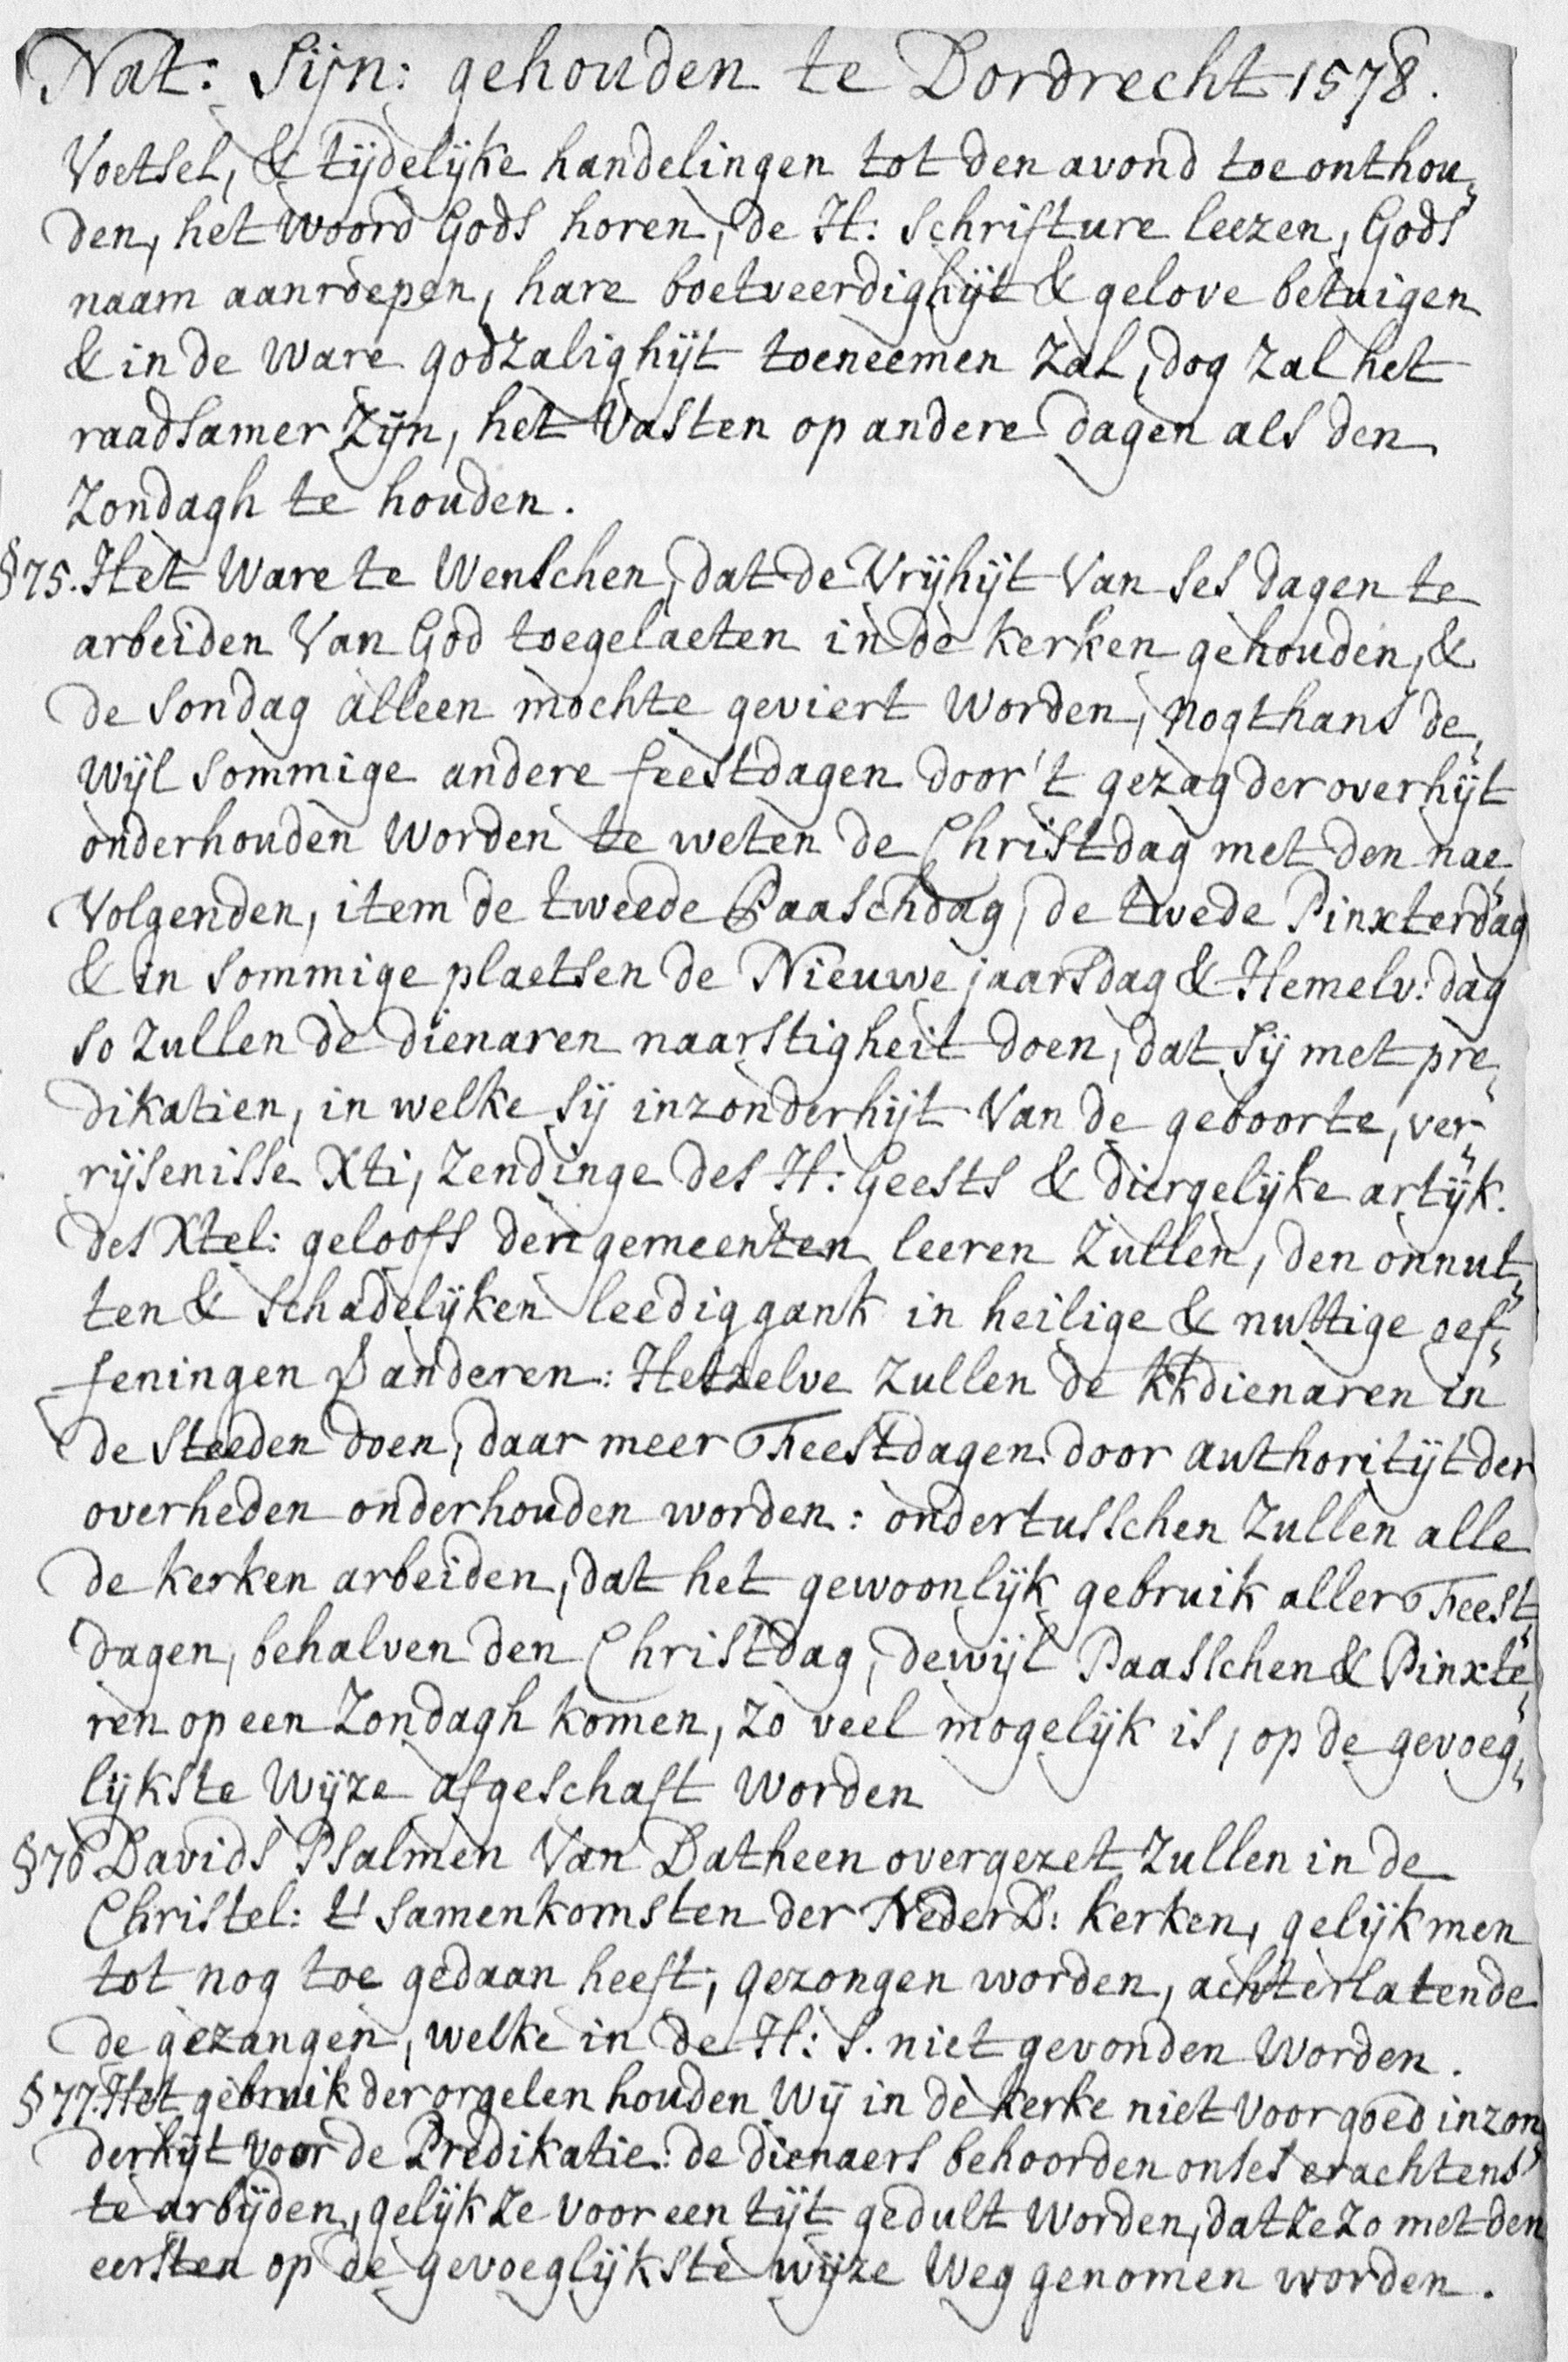 Nat: Sijn: gehouden te Dordrecht 1578.
Voetsel, & tijdelijke handelingen tot den avond toe onthou„
den, het woord Gods horen, de H: Schrifture leezen, Gods
naam aanroepen, hare boetveerdighijt & gelove betuigen
& in de ware godzalighijt toeneemen zal, dog zal het
raadsamer zijn, het Vasten op andere dagen als den
Zondagh te houden.
§75. Het Ware te Wenschen, dat de Vrijhijt Van ses dagen te
arbeiden Van God toegelaeten in de kerken gehouden, &
de Sondag alleen mochte geviert Worden, nogthans de„
wijl Sommige andere feestdagen door 't gezag der overhijt
onderhouden Worden te weten de Christdag met den nae„
Volgenden, item de tweede Paaschdag, de twede Pinxterdag
& in Sommige plaetsen de Nieuwe jaarsdag & Hemelv: dag
so zullen de dienaren naarstigheit doen, dat sij met pre„
dikatien, in welke sij inzonderhijt Van de geboorte, ver„
rijsenisse Xti, zendinge des H: Geests & diergelijke artijk.
des Xtel: geloofs den gemeenten leeren zullen, den onnut„
ten & schadelijken leediggank in heilige & nuttige oef„
feningen Veranderen: Hetzelve zullen de kkdienaren in
de steeden doen, daar meer Feestdagen door authoritijt der
overheden onderhouden worden: ondertusschen zullen alle
de kerken arbeiden, dat het gewoonlijk gebruik aller Feest„
dagen, behalven den Christdag, dewijl Paasschen & Pinxte„
ren op een Zondagh komen, zo veel mogelijk is, op de gevoeg„
lijkste Wijze afgeschaft Worden
§76 Davids Psalmen Van Datheen overgezet zullen in de
Christel: t'samenkomsten der NederD: kerken, gelijk men
tot nog toe gedaan heeft, gezongen worden, achterlatende
de gezangen, welke in de H: S. niet gevonden Worden.
§77. Het gebruik der orgelen houden Wij in de kerke niet voor goed inzon„
derhijt voor de Predikatie: de dienaers behoorden onses erachtens
te arbijden, gelijk ze voor een tijt gedult Worden, dat ze zo met den
eersten op de gevoeglijkste wijze Weg genomen worden.